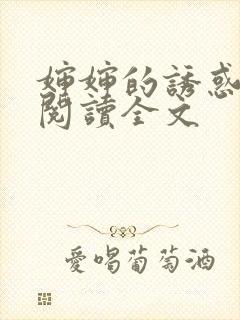 嬸嬸的誘惑
閱讀全文
愛喝葡萄酒